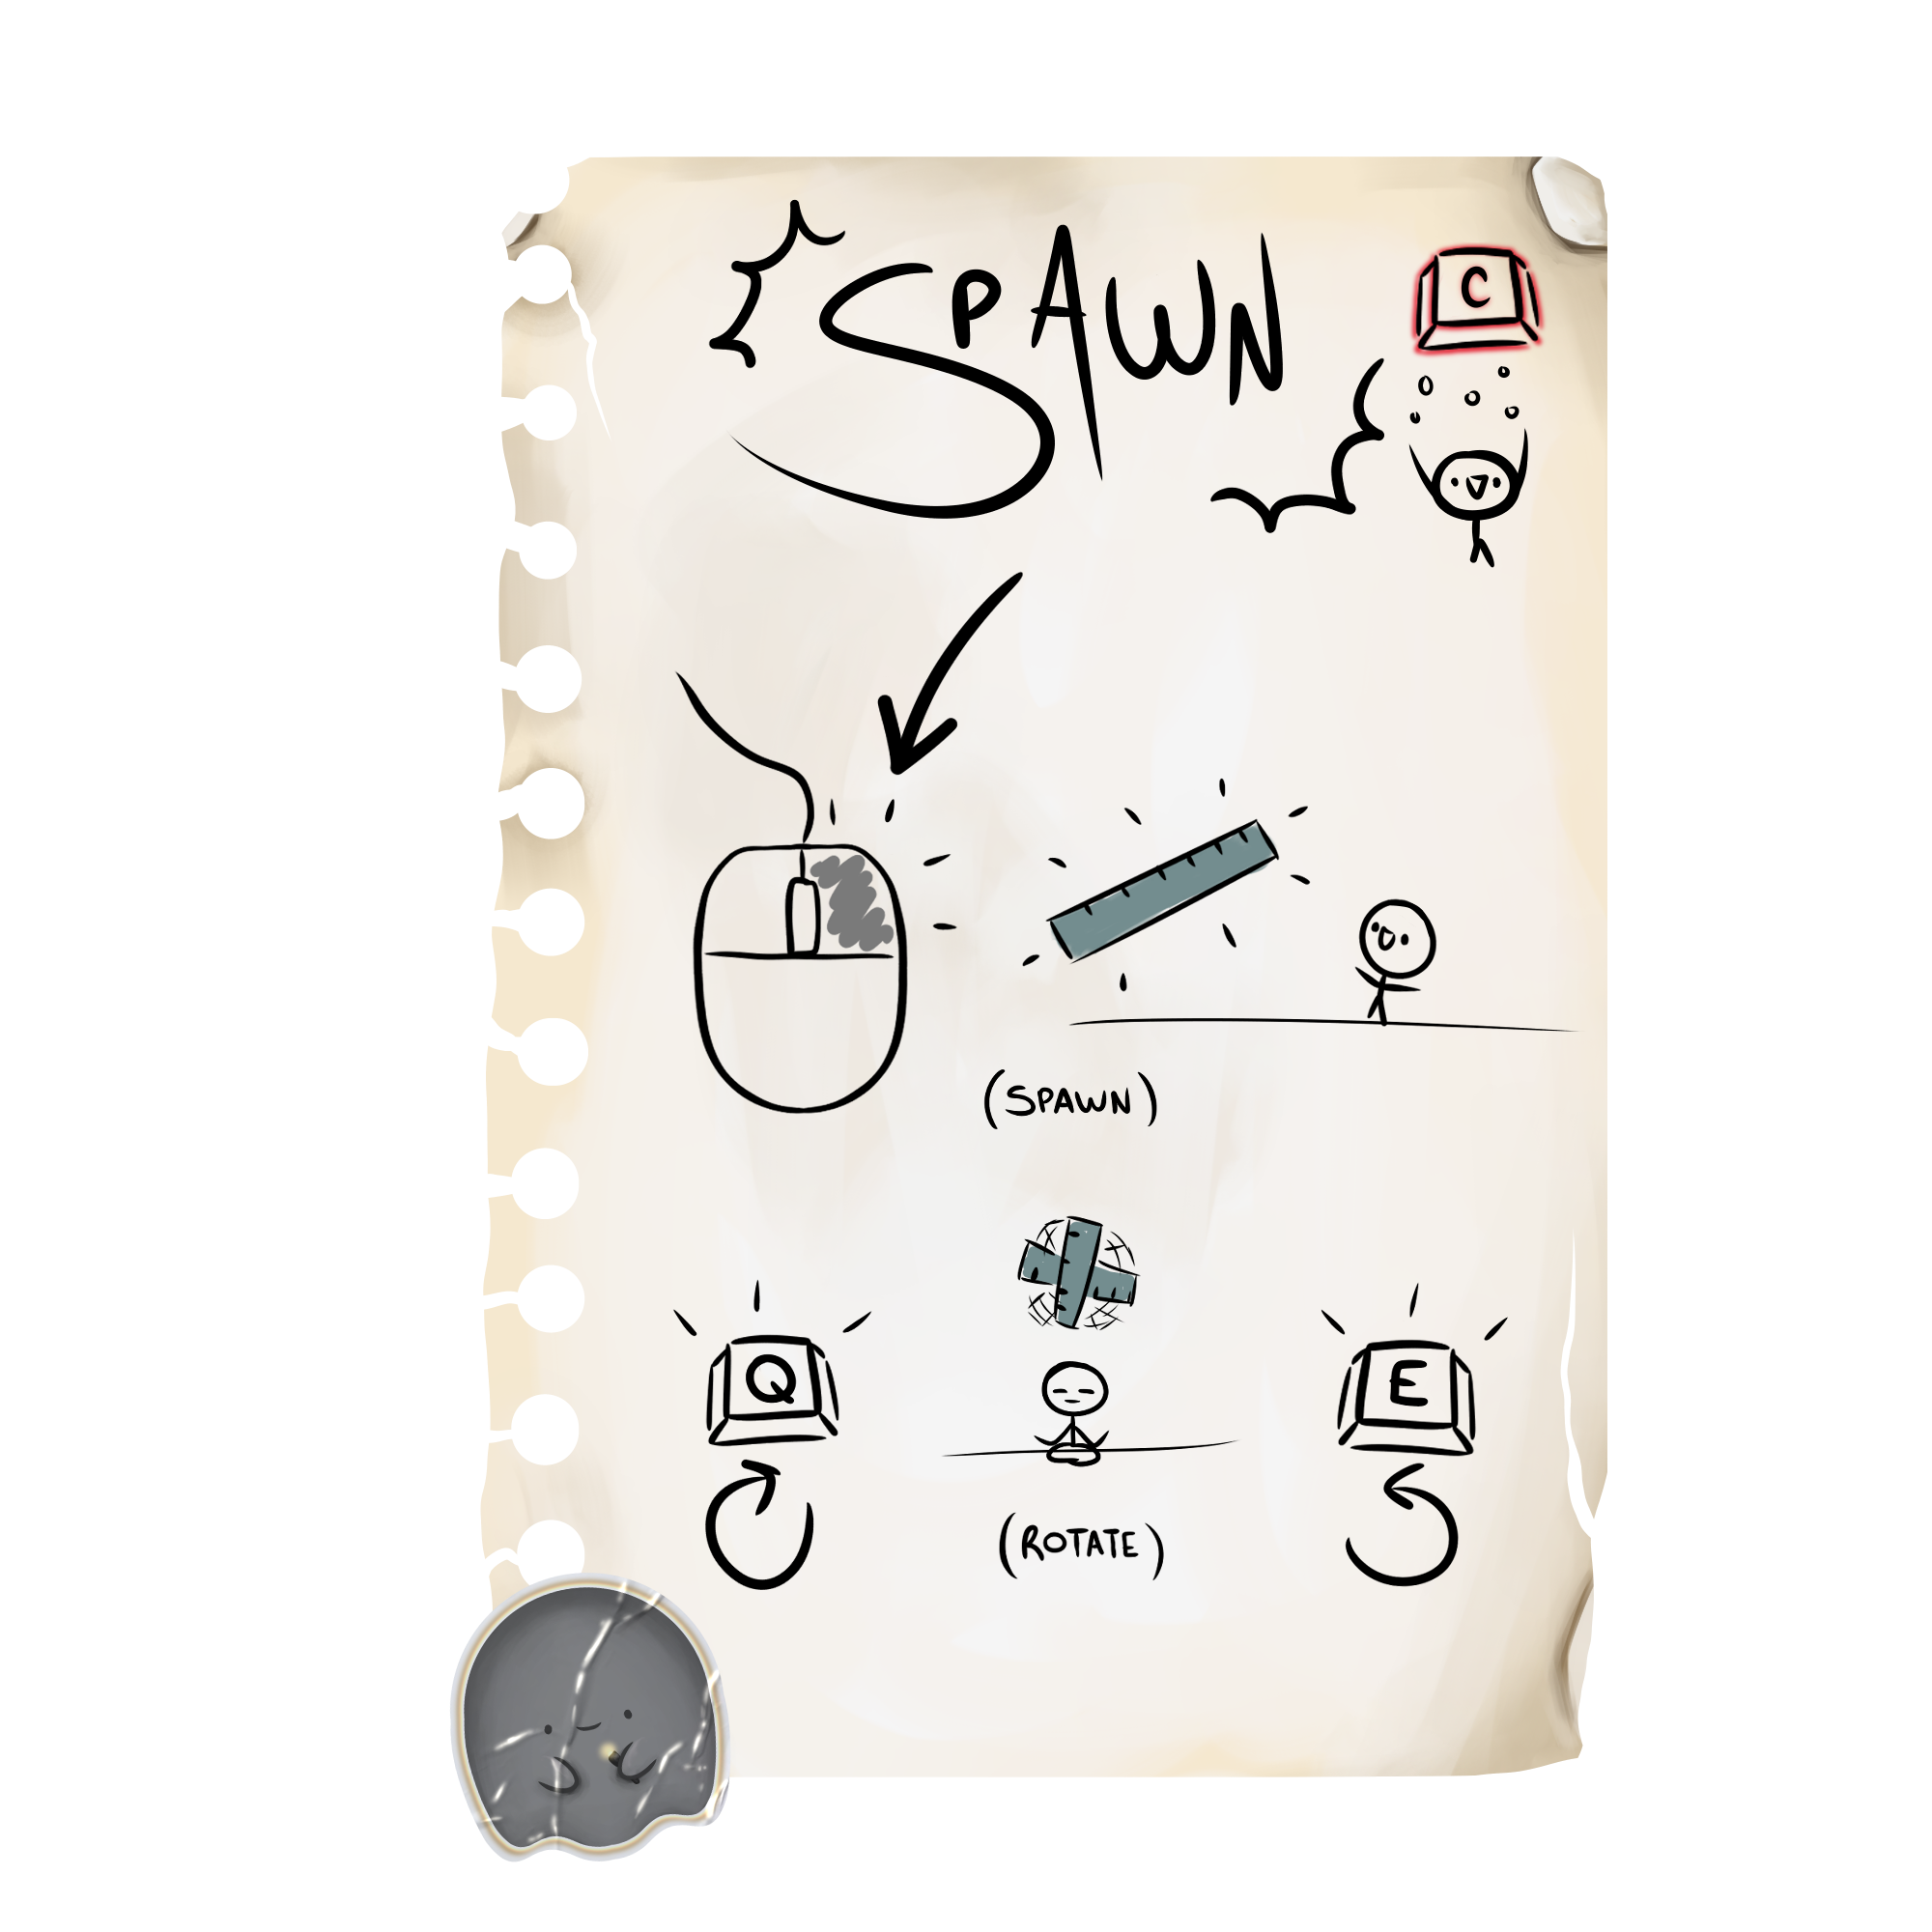 SPAWN
C
(SPAWN)
Q
E
(ROTATE)